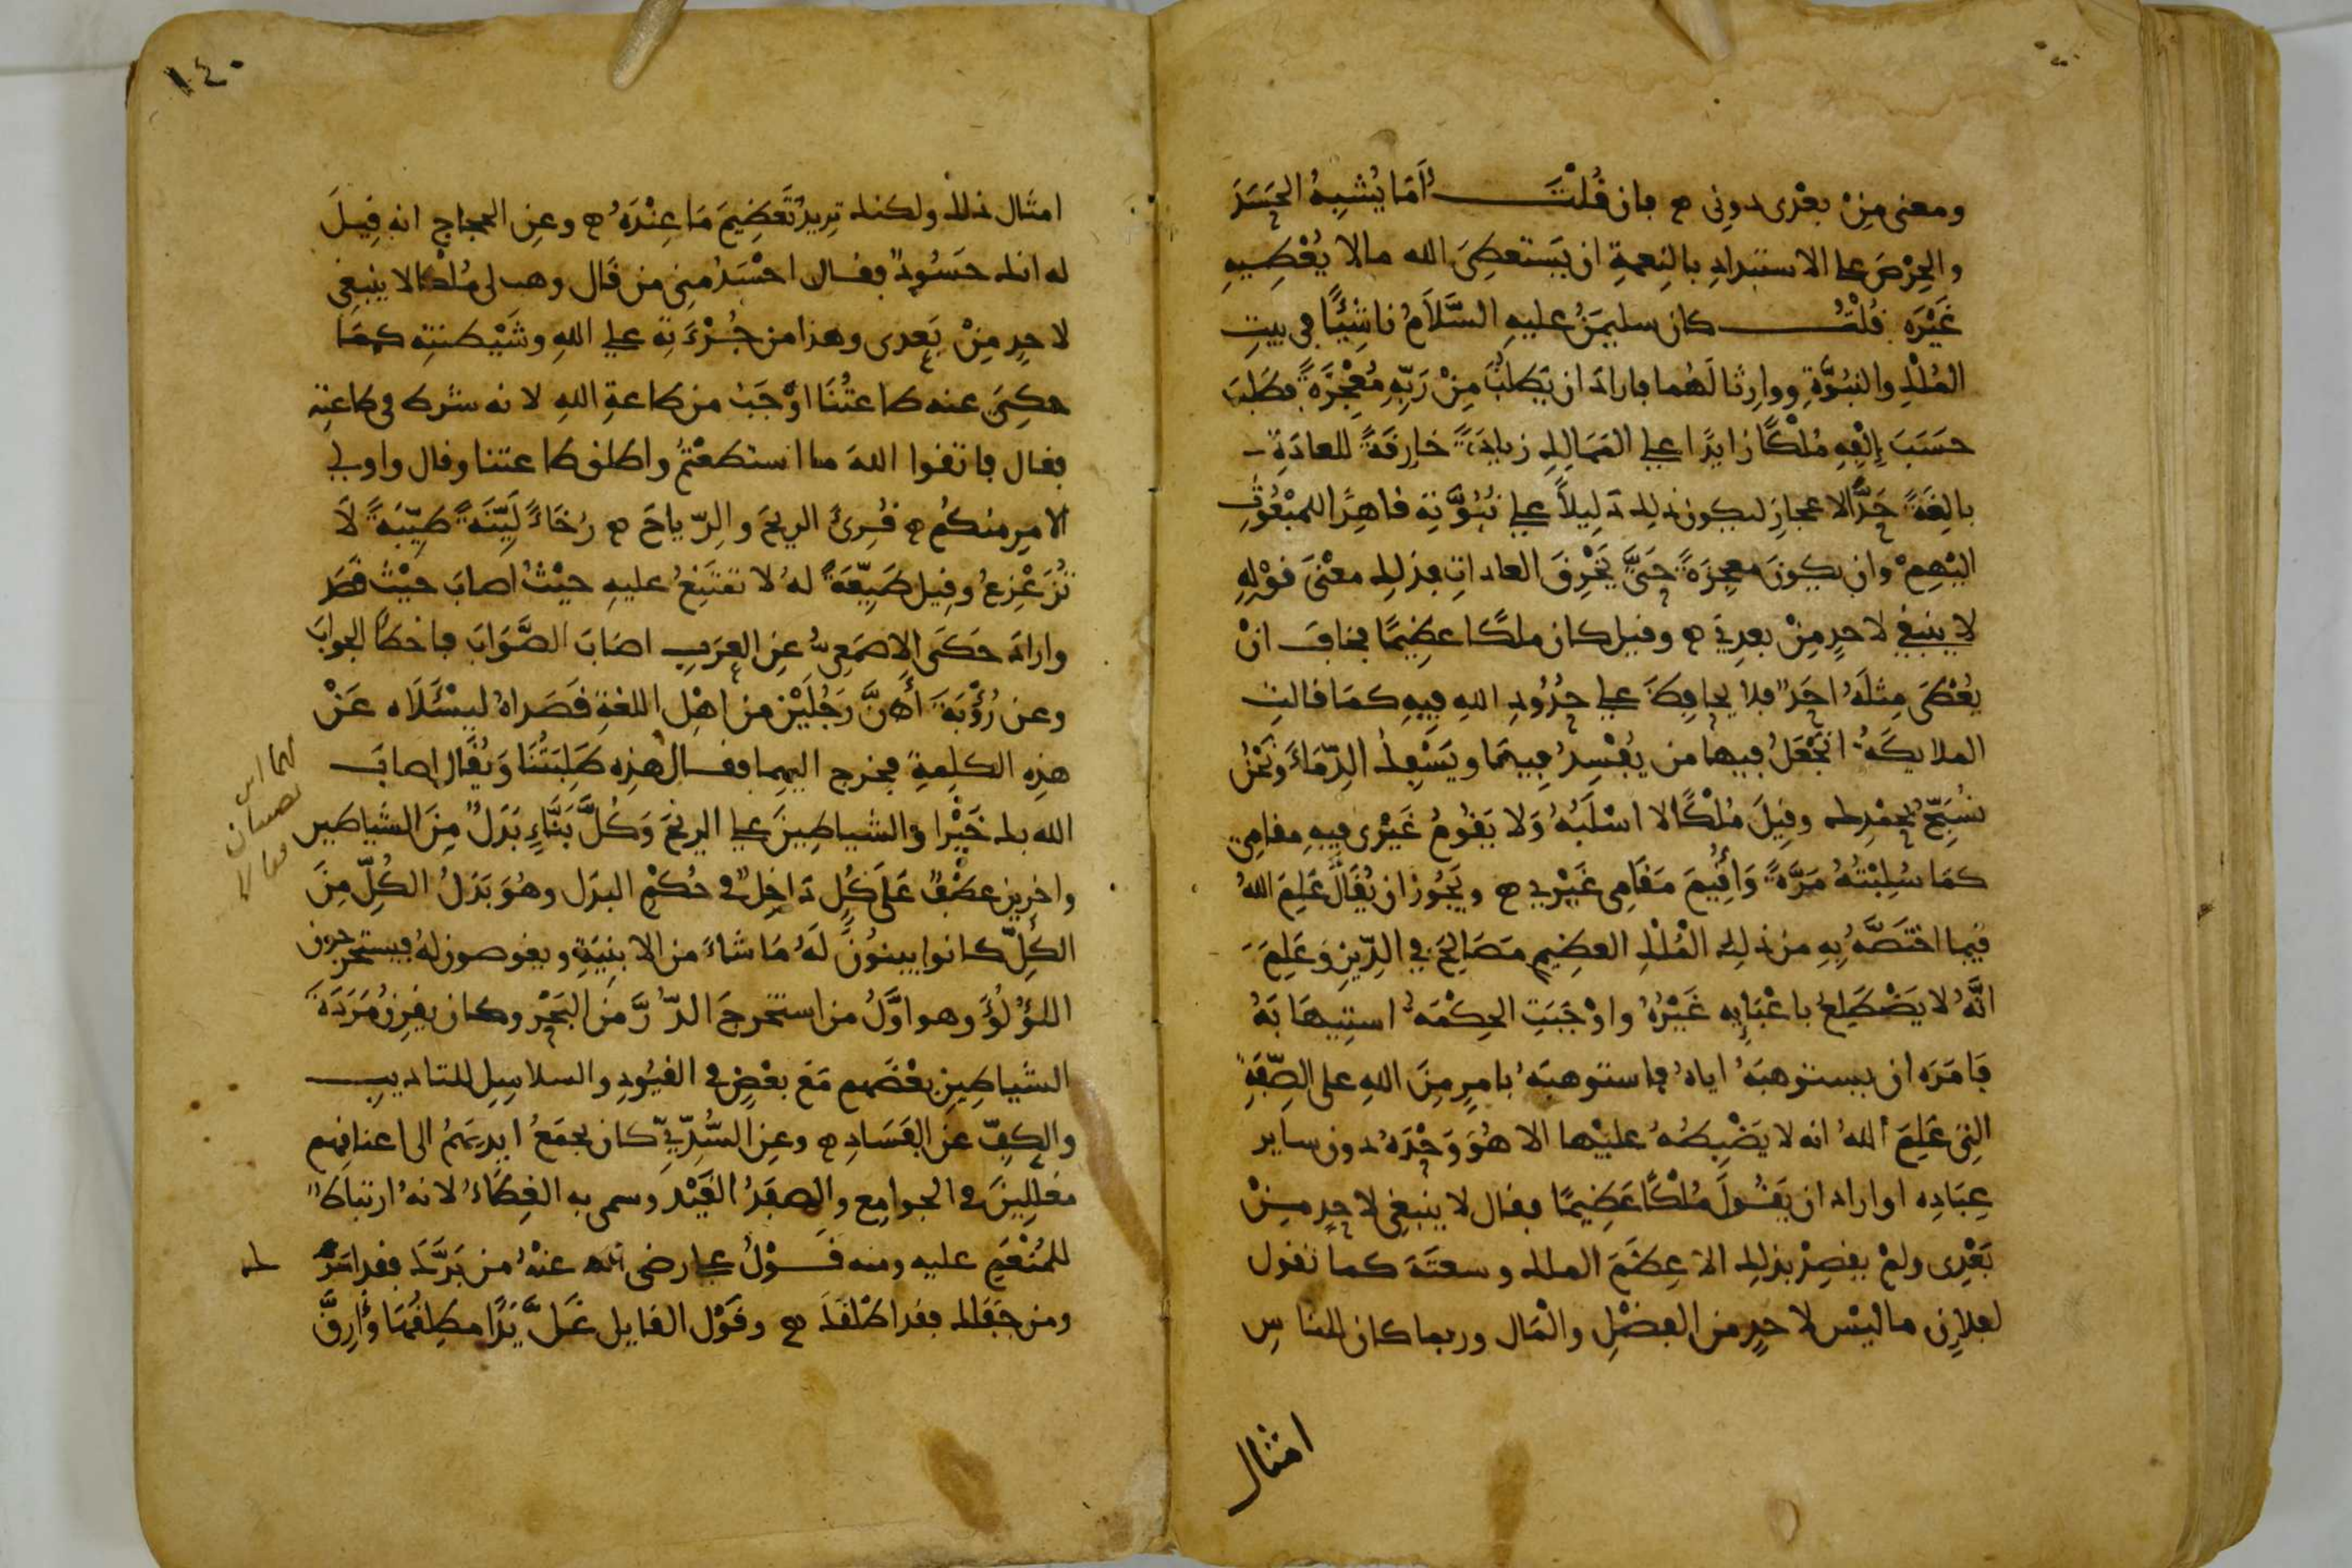 ومعنى مِنْ بعْدى دونى ه فان قُلْتَ أمَا يُشبِهُ الحَسَدَ
والحِرْصَ على الاستبدادِ بالنِعمةِ ان يَستعطِىَ الله مالا يُعْطِيهِ
غَيْرَه قُلْتُ كان سليمنُ عليهِ السَّلَامُ ناشِئًا في بيتِ
المُلْكِ والنبُوَّةِ ووارِثا لَهُما فارادَ ان يَطلبَ مِنْ رَبِّهِ مُعْجِزَةً فطَلَبَ
حسَبَ إِلْفِهِ مُلْكًا زايدًا على المَمَالِكِ زيادَةً خارِقَةً للعادَةِ
بالِغَةً حَدَّ الاعجازِ ليكون ذلك دَلِيلاً على نُبُوَّتِه قاهِرًا للمبْعُوثِ
اليْهِمْ وان يكونَ معجِزَةً حتىَّ يَخْرِقَ العاداتِ فذلك معْنَى قوْلِهِ
لا ينبغي لاحدٍ مِنْ بعدِي ه وقيل كان ملكًا عظِيمًا فخافَ انْ
يُعْطَى مِثلَهُ احَدٌ فلا يحافِظَ على حُدُودِ اللهِ فِيهِ كمَا قالتِ
الملايكَةُ اتَجْعَلُ فيها من يُفْسِدُ فِيهَا ويَسْفِكُ الدِّمَاءَ وَنَحْنُ
نسَبِّحُ بحَمْدِك وقِيلَ مُلْكًا لا اسْلَبُهُ وَلا يَقُومُ غَيْرى فِيهِ مقامِى
كمَا سُلِبْتُهُ مَرَّةً وَأُقِيمَ مَقَامِى غَيْرِي ه ويَجُوز ان يُقَالَ عَلِمَ اللهُ
فيما اختَصَّهُ بِهِ من ذلِك المُلْكِ العظِيمِ مَصَالِحَ في الدِّينِ وَعَلِمَ
انَّهُ لا يَضْطَلِعُ باعْبَايِه غَيْرُهُ واوْجَبَتِ الحِكْمَةُ استِيهَابَهُ
فَامَرَه ان يستوهبَهُ اياهُ فاستوهبَهُ بامرٍ مِنَ اللهِ على الصِّفَةِ
التِى عَلِمَ اللهُ انه لا يَضْبِطُهُ عليْها الا هُوَ وَحْدَهُ دون ساير
عِبَادِه او اراد ان يَقُولَ مُلْكًا عَظِيمًا فقال لا ينبغى لاحدٍ مِنْ
بَعْدِى ولمْ يقصِدْ بذلِك الا عِظَمَ الملك وسعتَهَ كما تقول
لفلانٍ ما ليْس لاحدٍ من الفضْلِ والْمَال وربما كان للناسِ
امثال
١٤٠
امثال ذلك ولكنك تريدُ تَعظِيمَ مَا عِنْدَهُ ه وعنِ الحجاج انه قِيلَ
له انك حسَودٌ فقال احْسَدُ مِنى من قال وهب لى مُلْكا لا ينبغى
لاحدٍ مِنْ بَعدى وهذا من جُرْءَتِهِ على اللهِ وشَيْطنتِه كمَا
حكِىَ عنه طاعتُنَا اوْجَبُ من طاعةِ اللهِ لانه شرط في طاعتِهِ
فقال فاتقوا اللهَ ما استطعْتمُ واطلق طاعتنا وقال واولى
الامرِ منكُم ه قُرِئَ الريحَ والرِّياحَ ه رُخَاءً لَيّنَةً طيّبَةً لَا
تُزَعْزِعُ وقيل طَيِّعَةً لهُ لا تمتَنِعُ عليهِ حيْثُ اصابَ حيْثُ قَصَدَ
وارادَ حَكَى الاصْمَعِىُّ عنِ العرَبِ اصَابَ الصَّوَابَ فاخطأَ الجوابَ
وعن رُؤْبَةَ أنَّ رَجُلَيْنِ من اهْلِ اللغةِ قَصَداهُ ليسْئَلَاه عَنْ
هذِه الكلِمةِ فخرج اليهِما فقال هذِه طَلِبَتُنا وَيُقَال اصابَ
الله بك خَيْرًا والشياطِينَ على الريحَ وَكُلَّ بَنَّاءٍ بَدَلٌ مِنَ الشياطين
واخرين عطْفٌ عَلَى كُلّ دَاخِلٌ في حُكْمِ البدَل وهُوَ بَدَلُ الكُلّ مِنَ
الكُلّ كانوا يبنُونَ لَهُ مَا شاءَ من الابنِيَةِ ويغوصون لهُ فيستخرجون
اللؤْلُؤَ وهو اوَّلُ من استخرجَ الدُّرَّ منَ البَحْرِ وكان يقرِنُ مَرَدَةَ
الشياطِينِ بعْضَهم مَعَ بعْضٍ في القيُودِ والسلاسِلِ للتاديبِ
والكفِّ عن الفَسَادِ ه وعنِ السُّدِّيِّ كان يجمَعُ ايدِيَهُمُ الى اعناقِهم
مغلِلِينَ في الجوامعِ والصفَدُ القَيْدُ وسمى به العِطَاءُ لانهُ ارتباطٌ
للمُنْعَمِ عليه ومنه قَوْلُ على رضى الله عنْهُ من بَرَّكَ فقد اسَرَكَ
ومن جَفَاك فقد اطْلقَكَ ه وقَوْل القايل غَلَّ يَدًا مطلِقُهَا وأَرقَّ